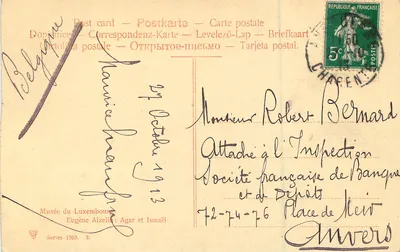 Post card — Postkarte — Carte postale
Correspondenz-Karte — Levelező-Lap — Briefkaart
Открытое письмо — Tarjeta postal.
RÉPUBLIQUE FRANÇAISE
5c
POSTES
CHARENT
Belgique
27 Octobre 1913
Maurice
Monsieur Robert Bernard
Attaché à l'Inspection
Société française de Banque
et de Dépôts
72-74-76 Place de Meir
Anvers
Musée du Luxembourg
Eugène : Agar et Ismaël
Series 3.